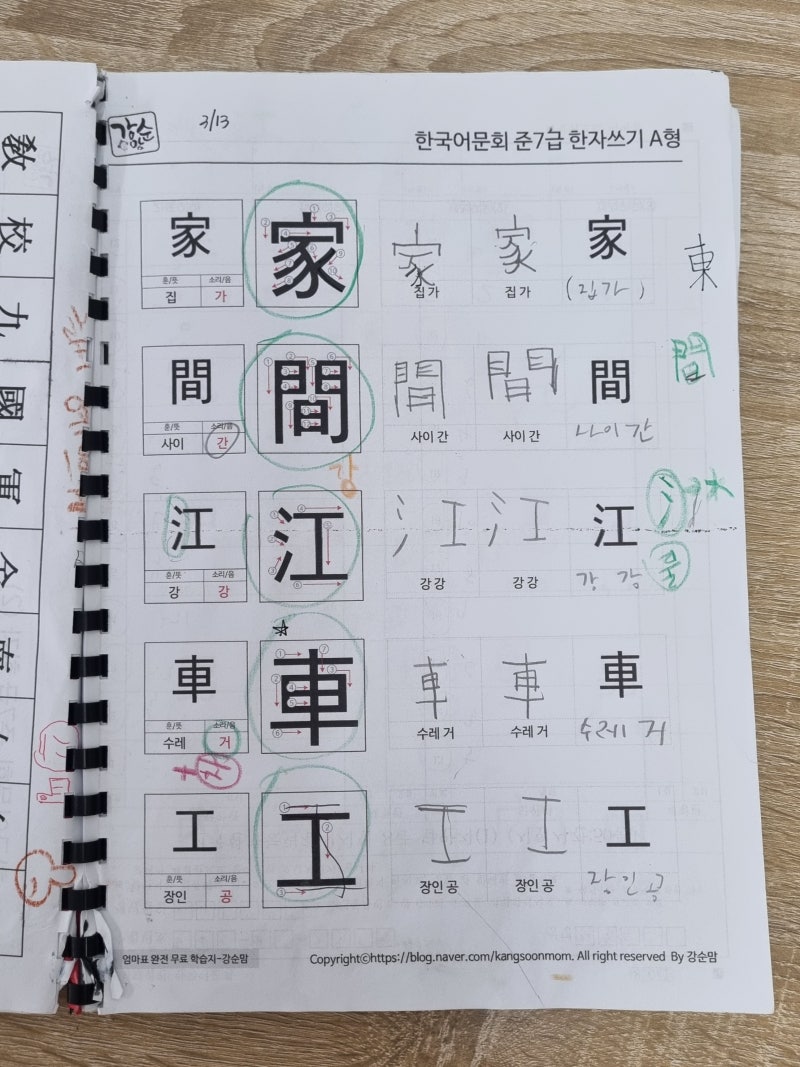 강순맘
3/13
한국어문회 준7급 한자쓰기 A형
家 家 家 家 家
훈/뜻 소리/음
집 가 집 가 집 가 (집 가)
東
間 間 間 間 間 間
훈/뜻 소리/음
사이 간 사이 간 사이 간 사이 간
강
江 江 江 江 江 氵 水
훈/뜻 소리/음
강 강 강 강 강 강 강 강 물
車 車 車 車 車
훈/뜻 소리/음
수레 거 수레 거 수레 거 수레 거
차
工 工 工 工 工
훈/뜻 소리/음
장인 공 장인 공 장인 공 장인 공
엄마표 완전 무료 학습지-강순맘
Copyright©https://blog.naver.com/kangsoonmom. All right reserved By 강순맘
敎
校
九
國
軍
今
南